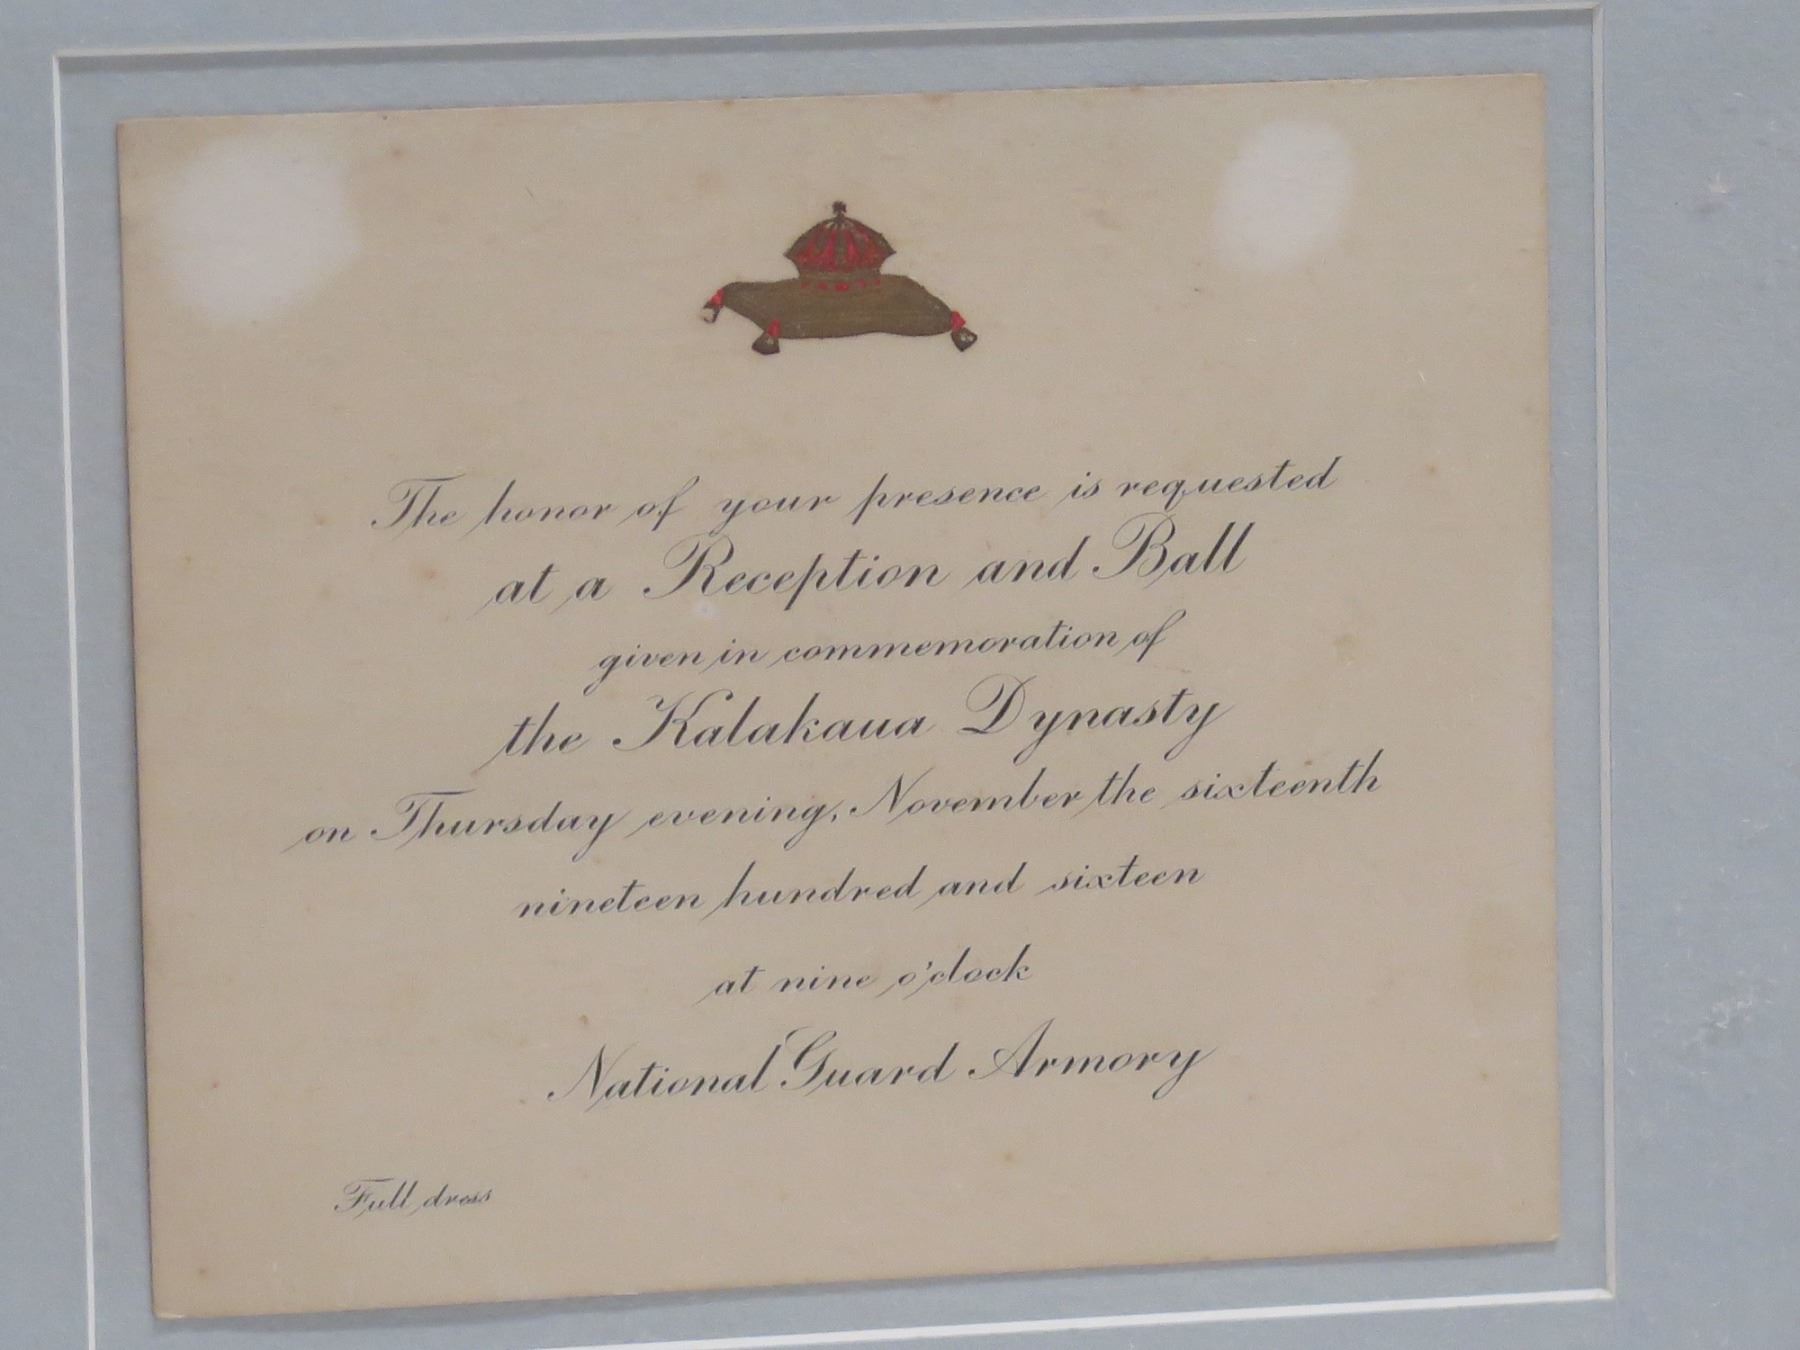 The honor of your presence is requested
at a Reception and Ball
given in commemoration of
the Kalakaua Dynasty
on Thursday evening, November the sixteenth
nineteen hundred and sixteen
at nine o'clock
National Guard Armory
Full dress